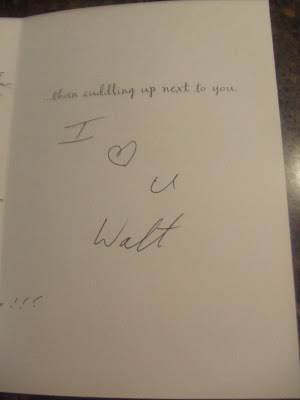 ...than cuddling up next to you.
I
♡
U
Walt
!!!